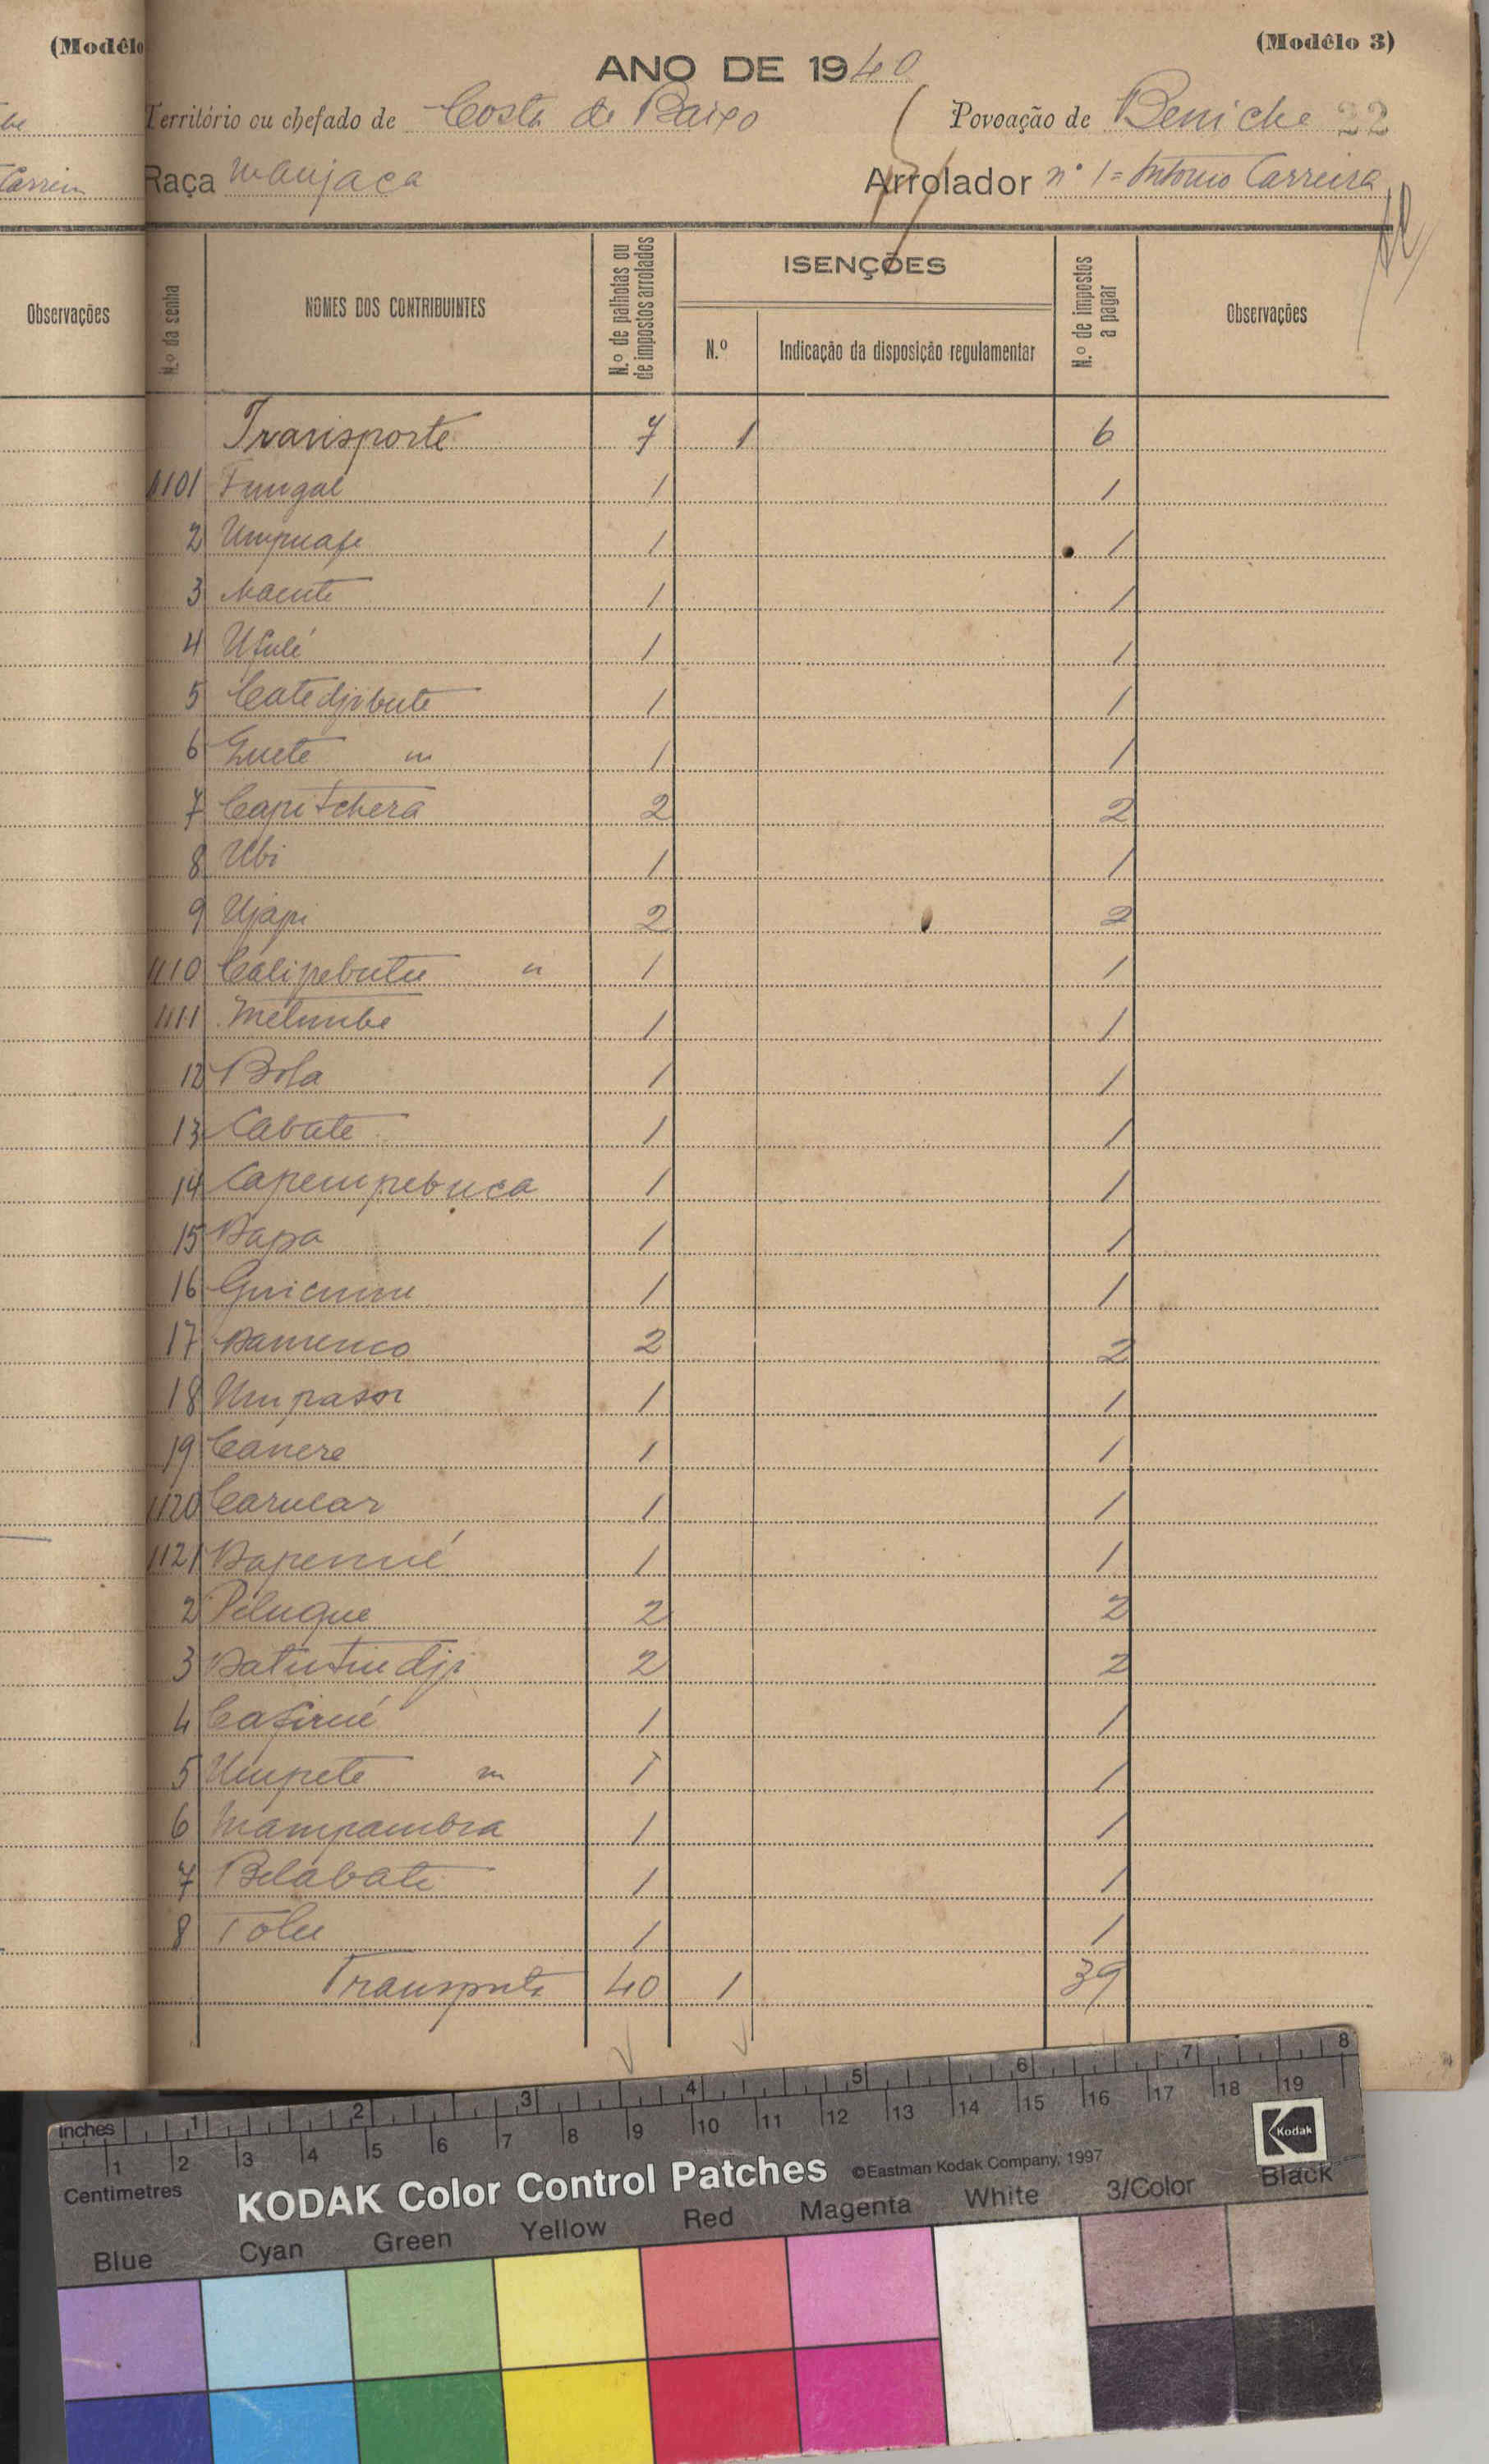 (Modêlo
(Modêlo 3)
ANO DE 1940
Território ou chefado de Costa de Baixo Povoação de Beniche 22
Raça Manjaca Arrolador nº 1 = António Carreira
Carreira
Observações
N.º da senha
NOMES DOS CONTRIBUINTES
N.º de palhotas ou de impostos arrolados
ISENÇÕES
N.º
Indicação da disposição regulamentar
N.º de impostos a pagar
Observações
Transporte 7 1 6
1101 Fungal 1 1
2 Umpuafe 1 1
3 Naente 1 1
4 Ufulé 1 1
5 Catedjibute 1 1
6 Guete m 1 1
7 Capitchera 2 2
8 Ubi 1 1
9 Ujapi 2 2
1110 Calipebutu " 1 1
1111 Melumbe 1 1
12 Bola 1 1
13 Cabate 1 1
14 Capempebuca 1 1
15 Dapa 1 1
16 Guicumu 1 1
17 Damenco 2 2
18 Umpasor 1 1
19 Canere 1 1
1120 Carucar 1 1
1121 Dapenué 1 1
2 Pelugue 2 2
3 Datutiudji 2 2
4 Cafirué 1 1
5 Umpete m 1 1
6 Mampambra 1 1
7 Belabate 1 1
8 Tolu 1 1
Transporte 40 1 39
inches 1 2 3 4 5 6 7 8
1 2 3 4 5 6 7 8 9 10 11 12 13 14 15 16 17 18 19
Centimetres
KODAK Color Control Patches ©Eastman Kodak Company, 1997 Kodak
Blue Cyan Green Yellow Red Magenta White 3/Color Black